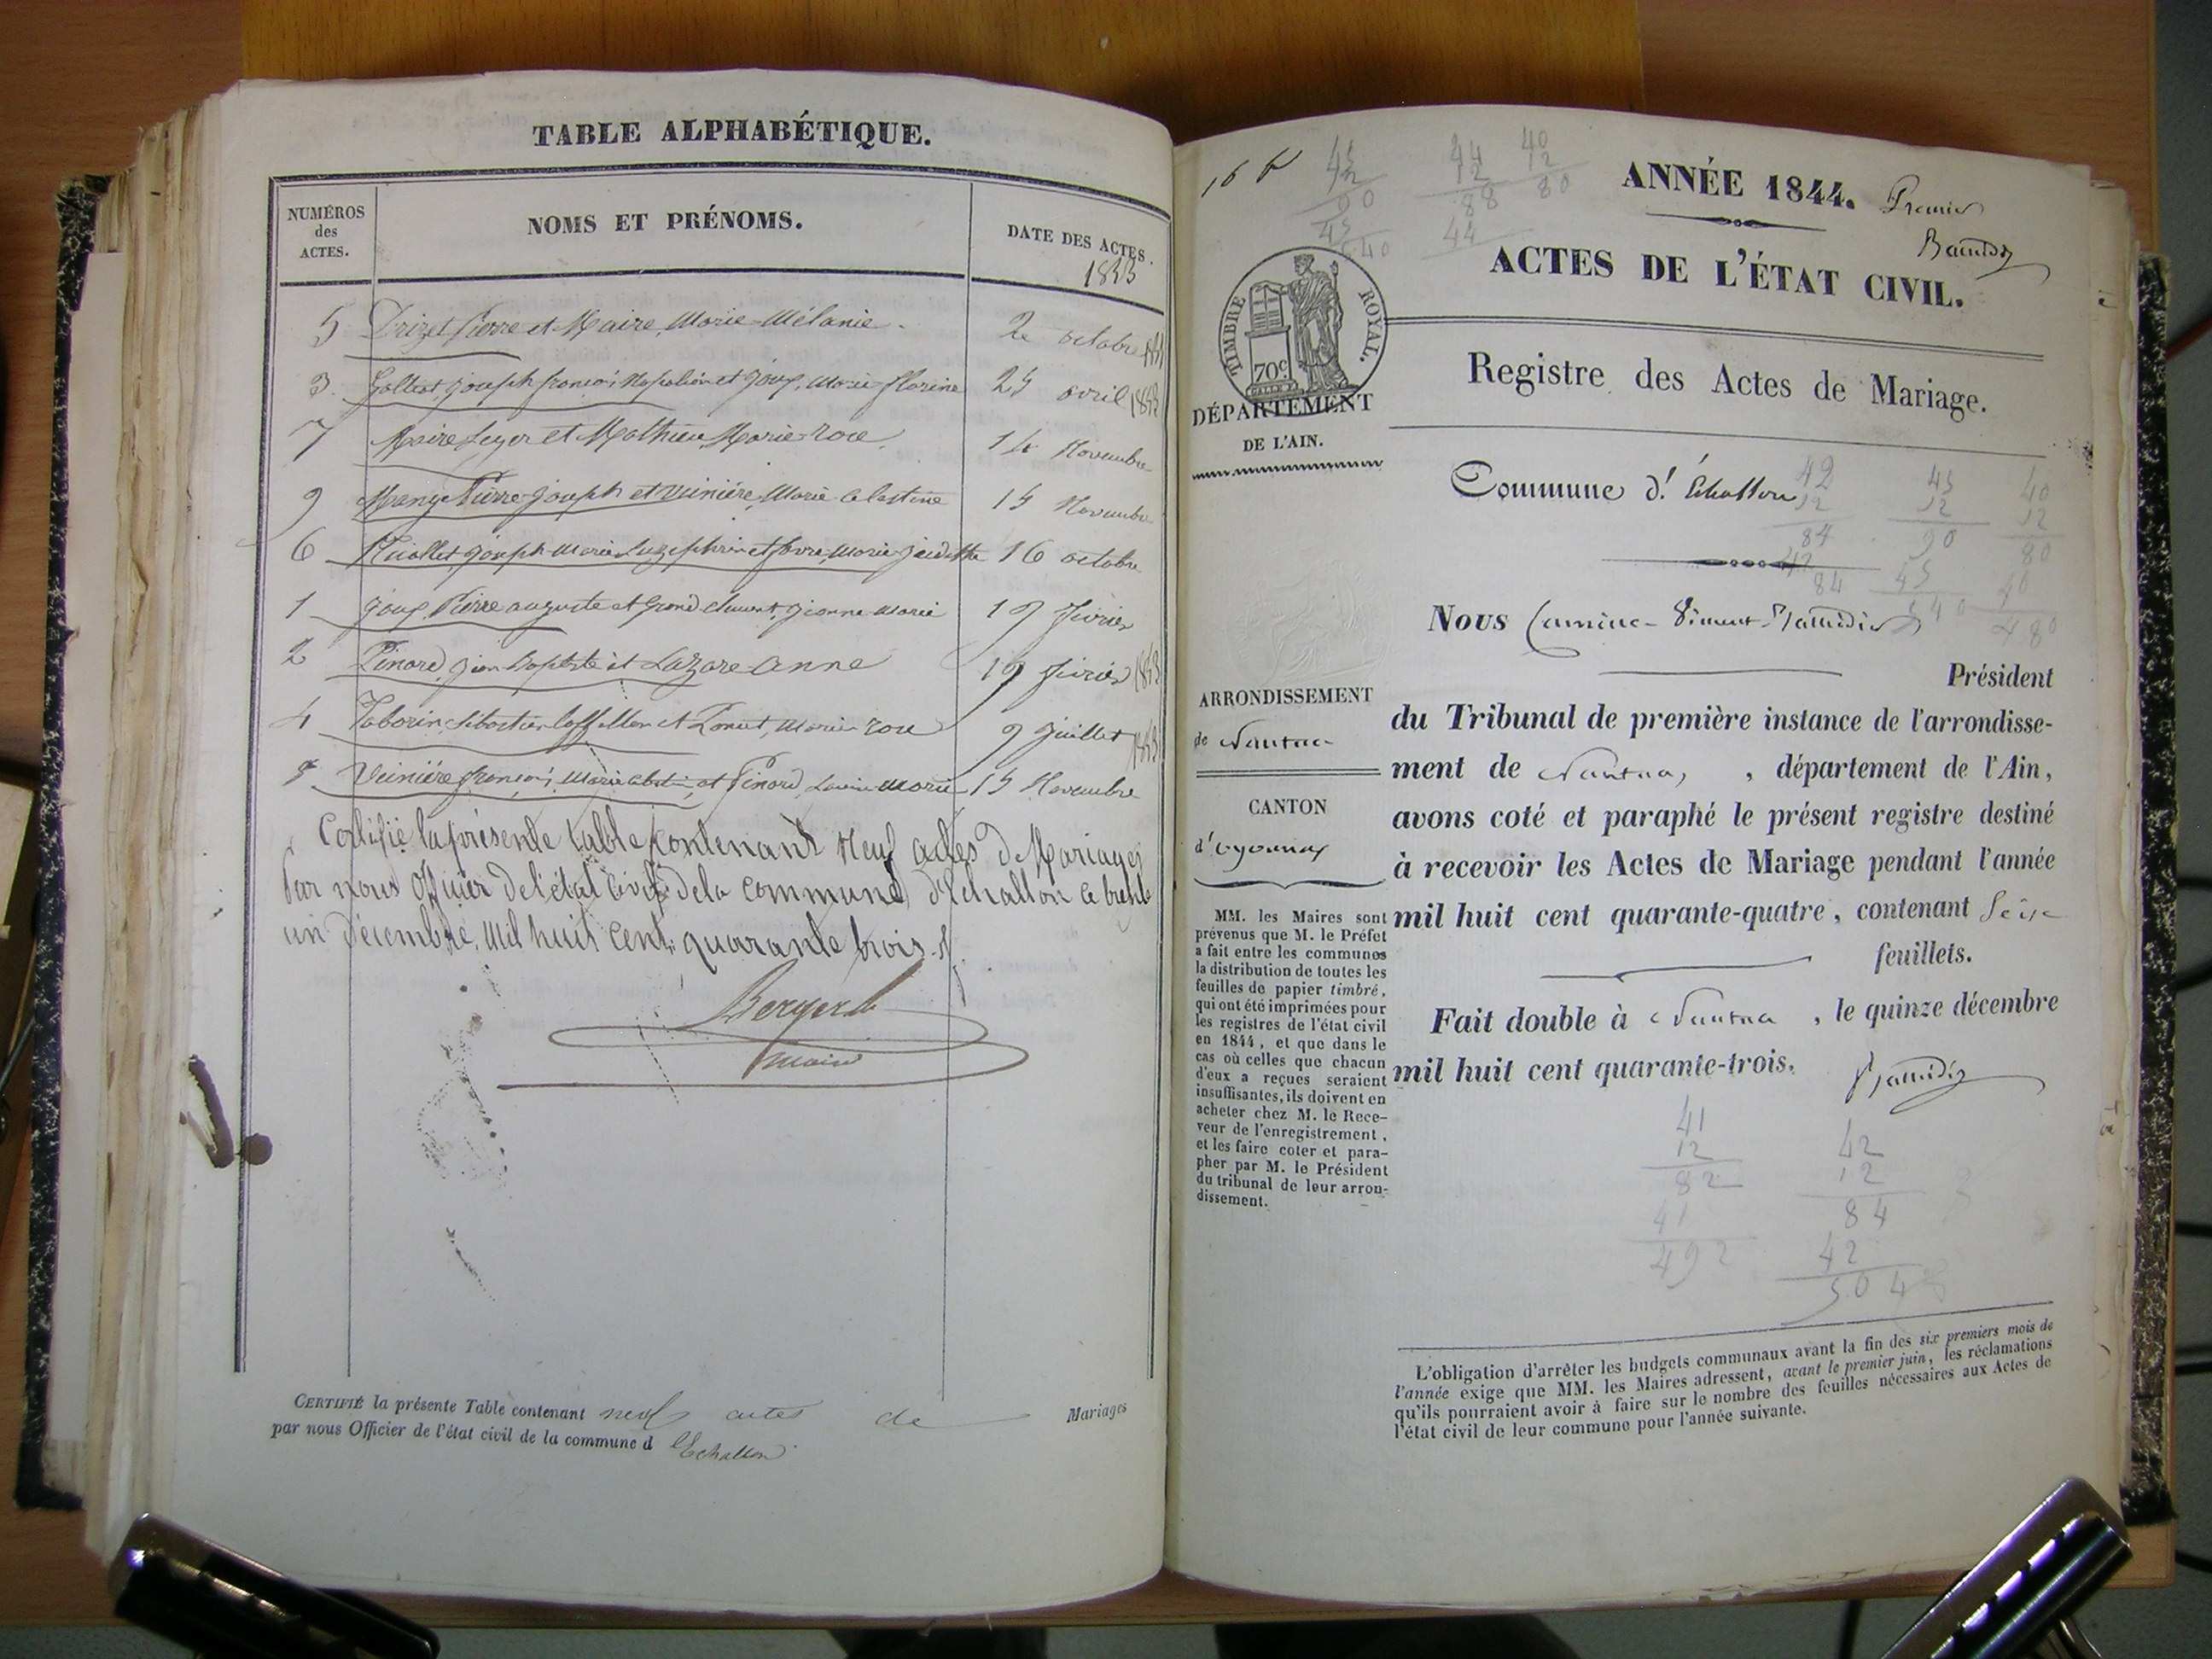 TABLE ALPHABÉTIQUE.
NUMÉROS
des
ACTES.
NOMS ET PRÉNOMS.
DATE DES ACTES.
1843
5 Drizet Pierre et Maire, Marie-Mélanie. 2 octobre
3 joseph françois Napoléon et Joux, Marie florine 25 avril 1843
7 Maire Leger et Mathieu Marie-rose 14 Novembre
9 Pierre-Joseph et Veinière, Marie Celestine 15 Novembre
6 joseph-Marie et favre, Marie 16 octobre
1 Joux, Pierre auguste et Grand clement, jeanne-Marie 19 février
2 Pinard, jean Baptiste et Lazare Anne 19 février 1843
4 Taborin, et Marie-rose 9 juillet 1843
Veinière françois, et Pinard, Marie 15 Novembre
Certifié la présente table contenant neuf actes de Mariages
Par nous Officier de l'état civil de la commune d'Echallon ce trente
un Décembre, Mil huit cent quarante trois.
maire
CERTIFIÉ la présente Table contenant neuf actes de Mariages
par nous Officier de l'état civil de la commune d'Echallon
ANNÉE 1844. Premier
ACTES DE L'ÉTAT CIVIL.
TIMBRE ROYAL.
70c.
Registre des Actes de Mariage.
DÉPARTEMENT
DE L'AIN.
Commune d'Echallon
Nous
Président
ARRONDISSEMENT
de Nantua
CANTON
d'Oyonnax
du Tribunal de première instance de l'arrondisse-
ment de Nantua, département de l'Ain,
avons coté et paraphé le présent registre destiné
à recevoir les Actes de Mariage pendant l'année
mil huit cent quarante-quatre, contenant Seize
feuillets.
Fait double à Nantua, le quinze décembre
mil huit cent quarante-trois.
MM. les Maires sont
prévenus que M. le Préfet
a fait entre les communes
la distribution de toutes les
feuilles de papier timbré,
qui ont été imprimées pour
les registres de l'état civil
en 1844, et que dans le
cas où celles que chacun
d'eux a reçues seraient
insuffisantes, ils doivent en
acheter chez M. le Rece-
veur de l'enregistrement,
et les faire coter et para-
pher par M. le Président
du tribunal de leur arron-
dissement.
41
12
82
41
492
42
12
84
42
504
L'obligation d'arrêter les budgets communaux avant la fin des six premiers mois de
l'année exige que MM. les Maires adressent, avant le premier juin, les réclamations
qu'ils pourraient avoir à faire sur le nombre des feuilles nécessaires aux Actes de
l'état civil de leur commune pour l'année suivante.